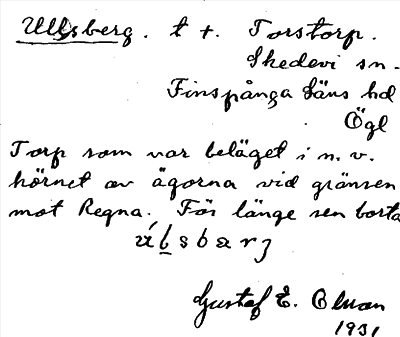 Ullsberg. t t. Torstorp.
Skedevi sn.
Finspånga läns hd
Ögl
Torp som var beläget i n. v.
hörnet av ägorna vid gränsen
mot Regna. För länge sen borta
Gustaf E.
1931